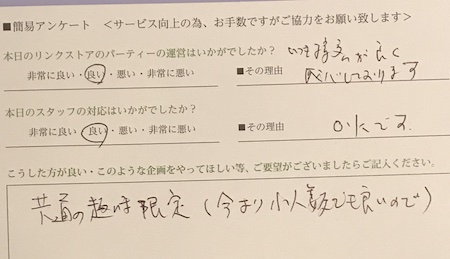 ■簡易アンケート <サービス向上の為、お手数ですがご協力をお願い致します>
本日のリンクストアのパーティーの運営はいかがでしたか?
いつも が良く
非常に良い・良い・悪い・非常に悪い
■その理由
しております
本日のスタッフの対応はいかがでしたか?
非常に良い・良い・悪い・非常に悪い
■その理由
いたです
こうした方が良い・このような企画をやってほしい等、ご要望がございましたらご記入ください。
共通の趣味限定(今より小人数でも良いので)